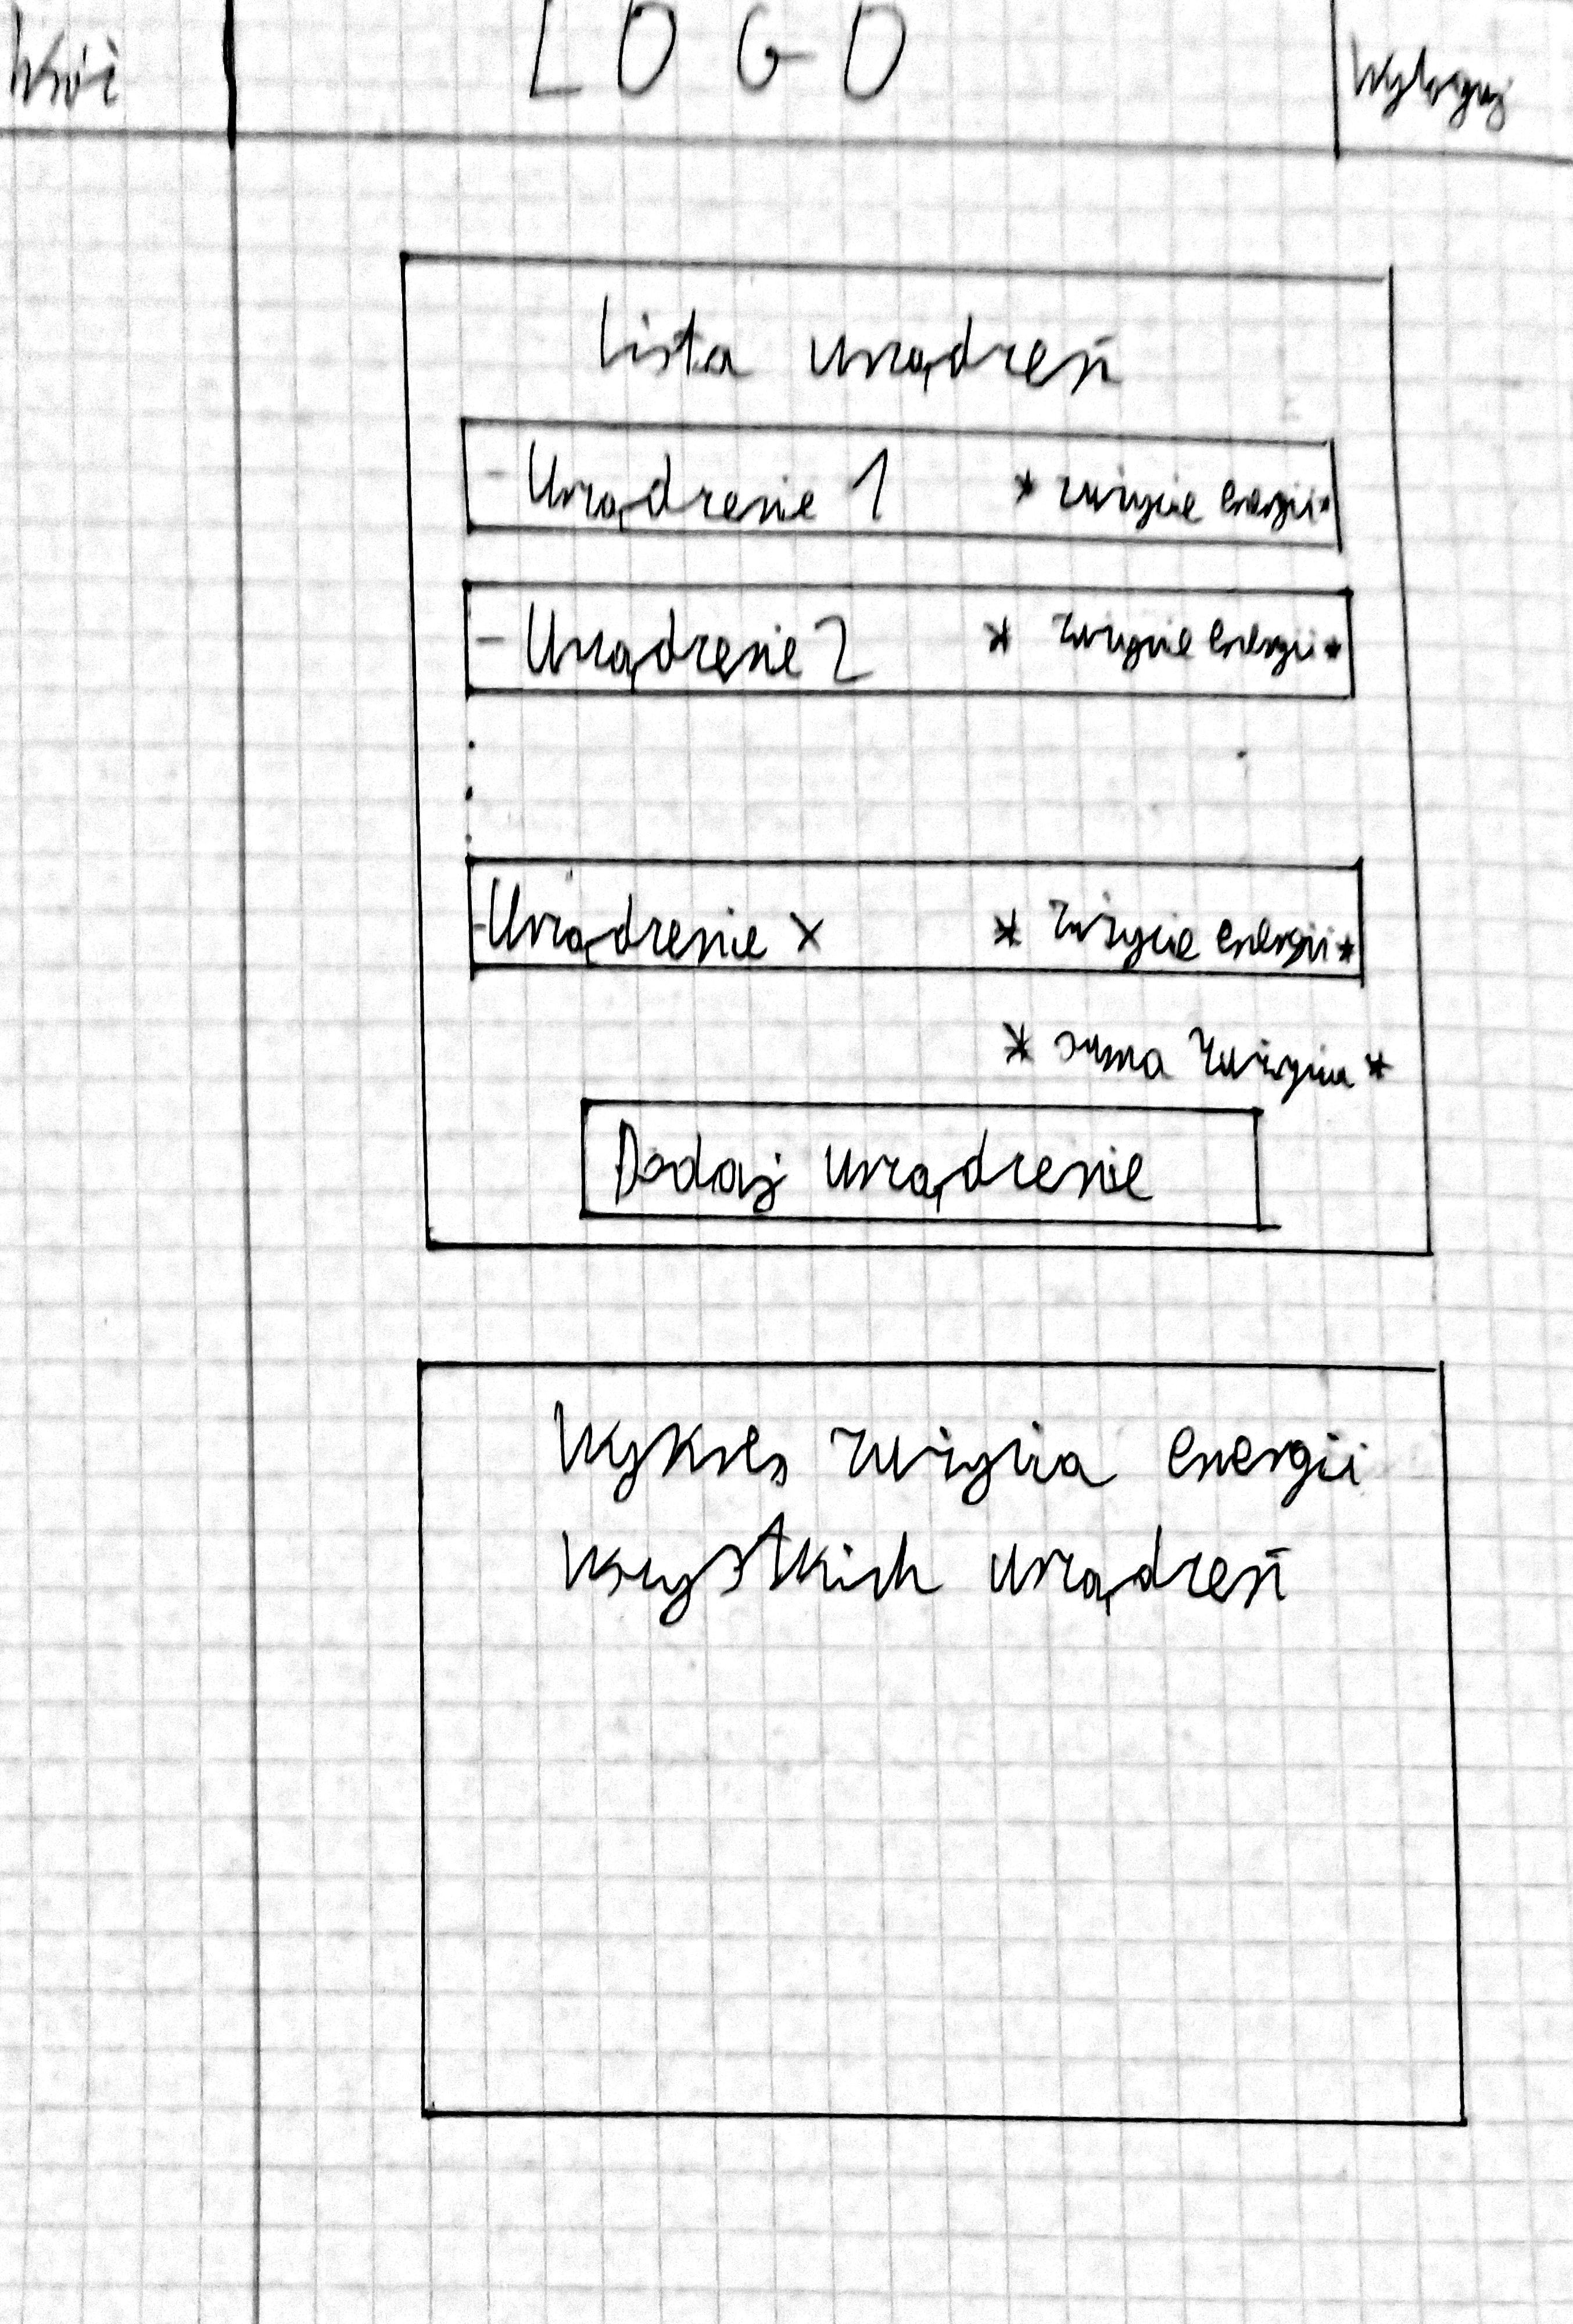 Wróć
LOGO
Wyloguj
Lista urządzeń
- Urządzenie 1 * zużycie energii *
- Urządzenie 2 * zużycie energii *
- Urządzenie x * zużycie energii *
* suma zużycia *
Dodaj urządzenie
Wykres zużycia energii
wszystkich urządzeń